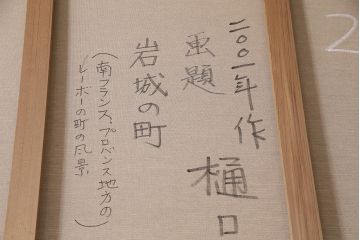 二〇〇一年作 樋口
画題
岩城の町
（南フランス、プロバンス地方の
レーボーの町の風景）
2